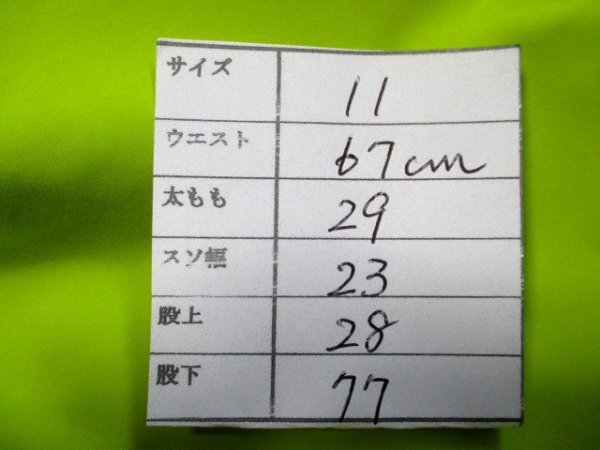 サイズ 11
ウエスト 67cm
太もも 29
スソ幅 23
股上 28
股下 77